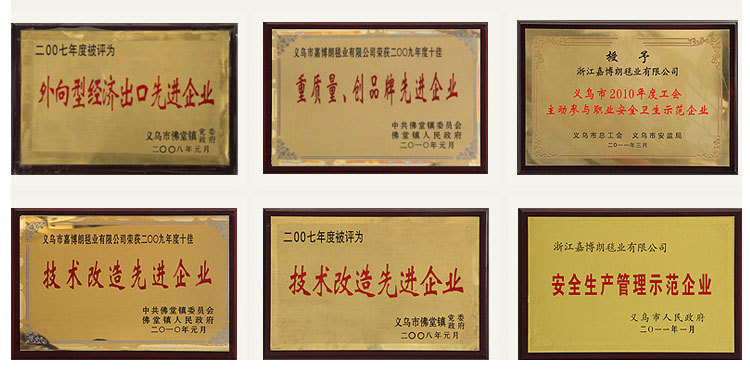 二00七年度被评为
外向型经济出口先进企业
义乌市佛堂镇 党委 政府
二00八年元月
义乌市嘉博朗毯业有限公司荣获二00九年度十佳
重质量、创品牌先进企业
中共佛堂镇委员会
佛堂镇人民政府
二〇一〇年元月
授予
浙江嘉博朗毯业有限公司
义乌市2010年度工会
主动参与职业安全卫生示范企业
义乌市总工会 义乌市安监局
二〇一一年三月
义乌市嘉博朗毯业有限公司荣获二00九年度十佳
技术改造先进企业
中共佛堂镇委员会
佛堂镇人民政府
二〇一〇年元月
二00七年度被评为
技术改造先进企业
义乌市佛堂镇 党委 政府
二00八年元月
浙江嘉博朗毯业有限公司
安全生产管理示范企业
义乌市人民政府
二〇一一年一月